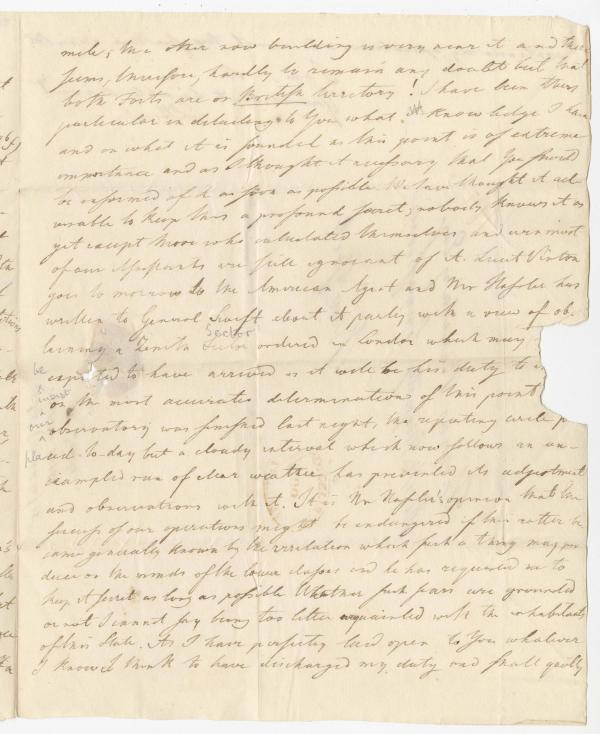 mile; the other now building is very near it and there
seems, therefore, hardly to remain any doubt but that
both Forts are on British territory! I have been thus
particular in detailing to You what knowledge I have
and on what it is founded as this point is of extreme
importance and as I thought it necessary that You should
be informed of it as soon as possible. We have thought it ad-
visable to keep this a profound secret; nobody knows it as
yet except those who calculated themselves, and even most
of our Assistants are still ignorant of it. Lieut Vinton
goes to morrow to the American Agent and Mr Hassler has
written to General Swift about it partly with a view of ob-
Sector
taining a Zenith Sector ordered in London which may
be
expected to have arrived as it will be his duty to
on the most accurate determination of this point
our
observatory was finished last night, the repeating circle
pla
ced to-day but a cloudy interval which now follows an un-
exampled run of clear weather has prevented its adjustment
and observations with it. It is Mr Hassler's opinion that the
success of our operations might be endangered if this matter be
came generally known by the irritation which such a thing may pro
duce on the minds of the lower classes and he has requested me to
keep it secret as long as possible. Whether such fears are grounded
or not I cannot say being too little acquainted with the inhabitants
of this State. As I have perfectly laid open to You whatever
I know I think to have discharged my duty and shall gladly